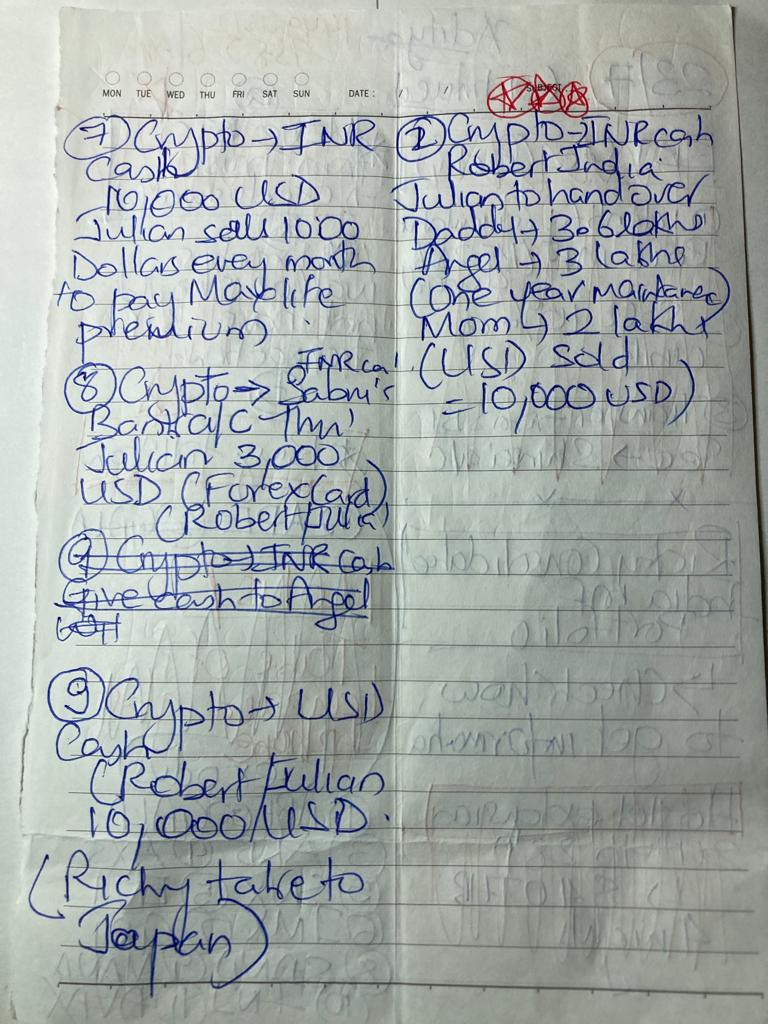 MON TUE WED THU FRI SAT SUN DATE : / /
⑦ Crypto → INR
Cash
10,000 USD
Julian sells 1000
Dollars every month
to pay Maxlife
premium
⑧ Crypto → Sabni's
Bank a/c Thru'
Julian 3,000
USD (Forex Card)
⑨ Crypto → INR Cash
Give cash to Angel
⑨ Crypto → USD
Cash
(Robert/Julian
10,000/USD.
(Richy take to
Japan)
Crypto → INR cash
Robert India
Julian to handover
Daddy → 3.6 lakhs
Angel → 3 lakhs
(One year maintanec)
Mom → 2 lakhs
(USD sold
= 10,000 USD)